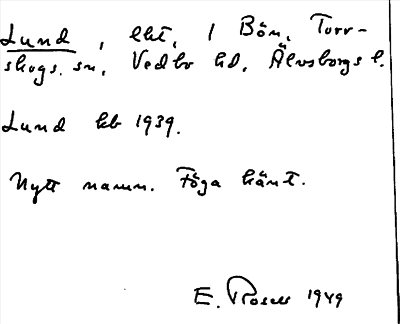 Lund, lht, 1 Bön, Torr-
skogs sn, Vedbo hd, Älvsborgs l.
Lund kb 1939.
Nytt namn. Föga känt.
E. 1949